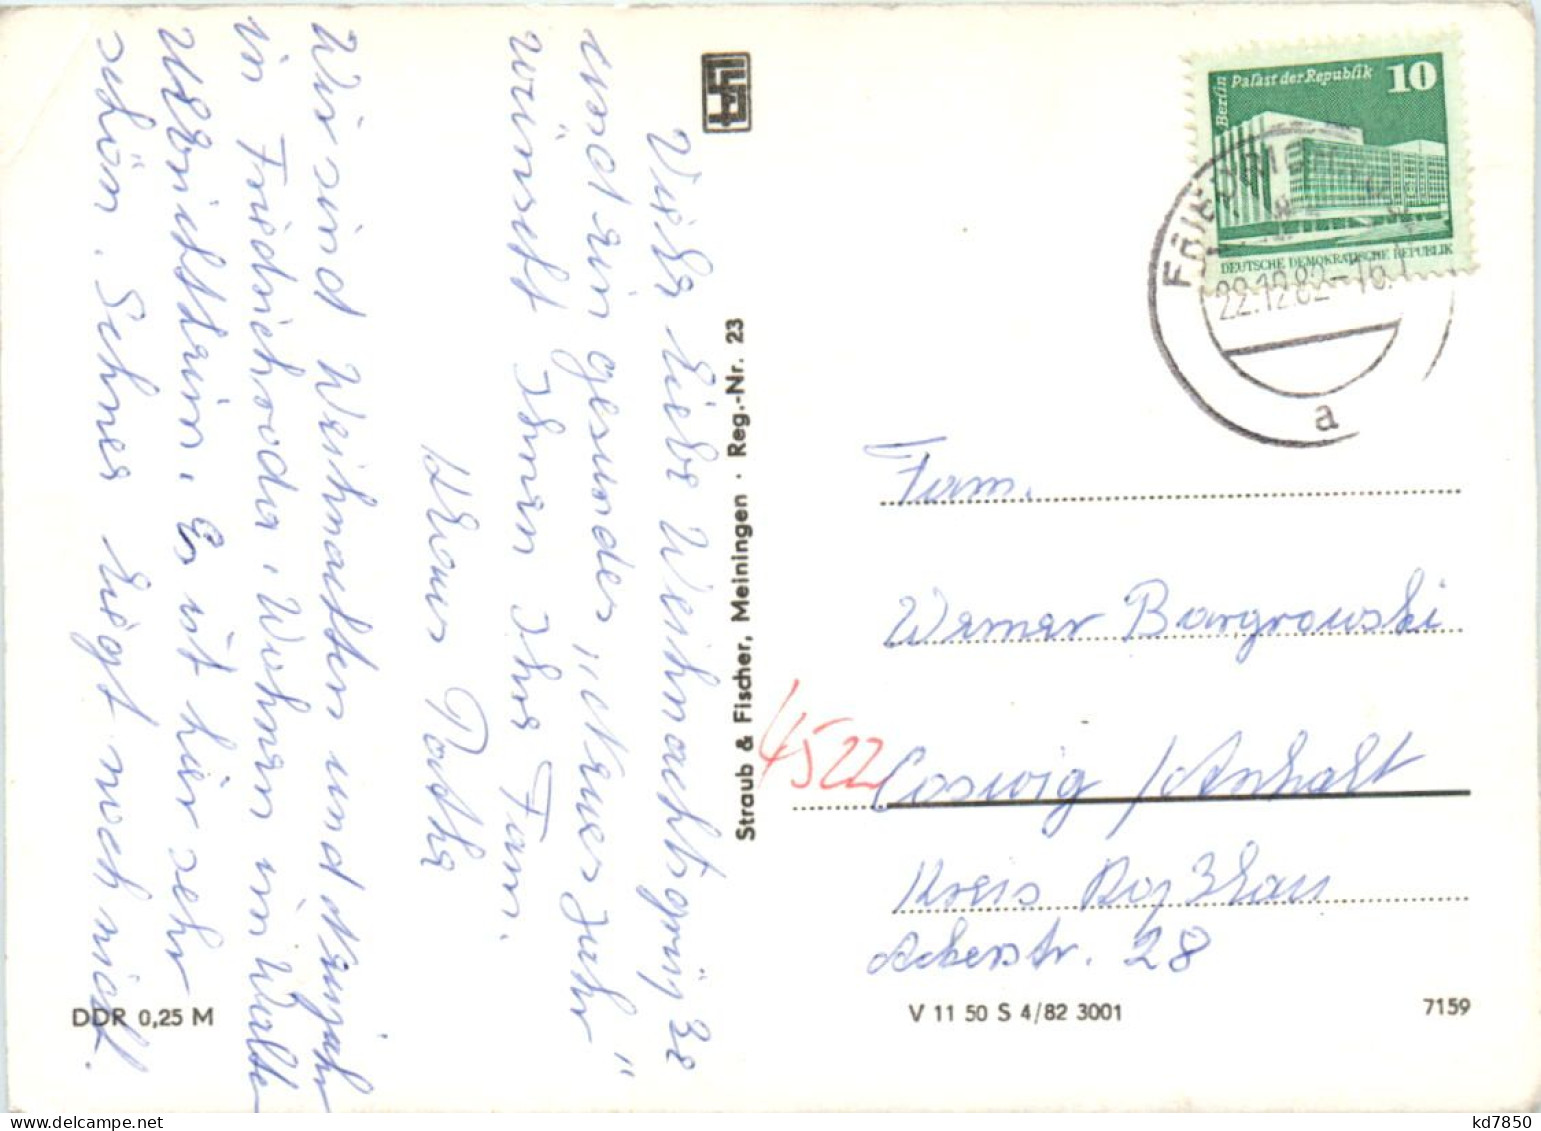 Viele liebe Weihnachtsgrüße
und ein gesundes „Neues Jahr"
wünscht Ihnen Ihre Fam.
Klaus Rothe
Wir sind Weihnachten und Neujahr
in Friedrichroda, Wohnen im Walter
Ulbrichtheim. Es ist hier sehr
schön. Schnee liegt noch nicht.
DDR 0,25 M
Straub & Fischer, Meiningen · Reg.-Nr. 23
Berlin Palast der Republik 10
DEUTSCHE DEMOKRATISCHE REPUBLIK
22.12.82-16
a
Fam.
Werner Bargrowski
4522 Coswig / Anhalt
Kreis Roßlau
Ackerstr. 28
V 11 50 S 4/82 3001
7159
kd7850